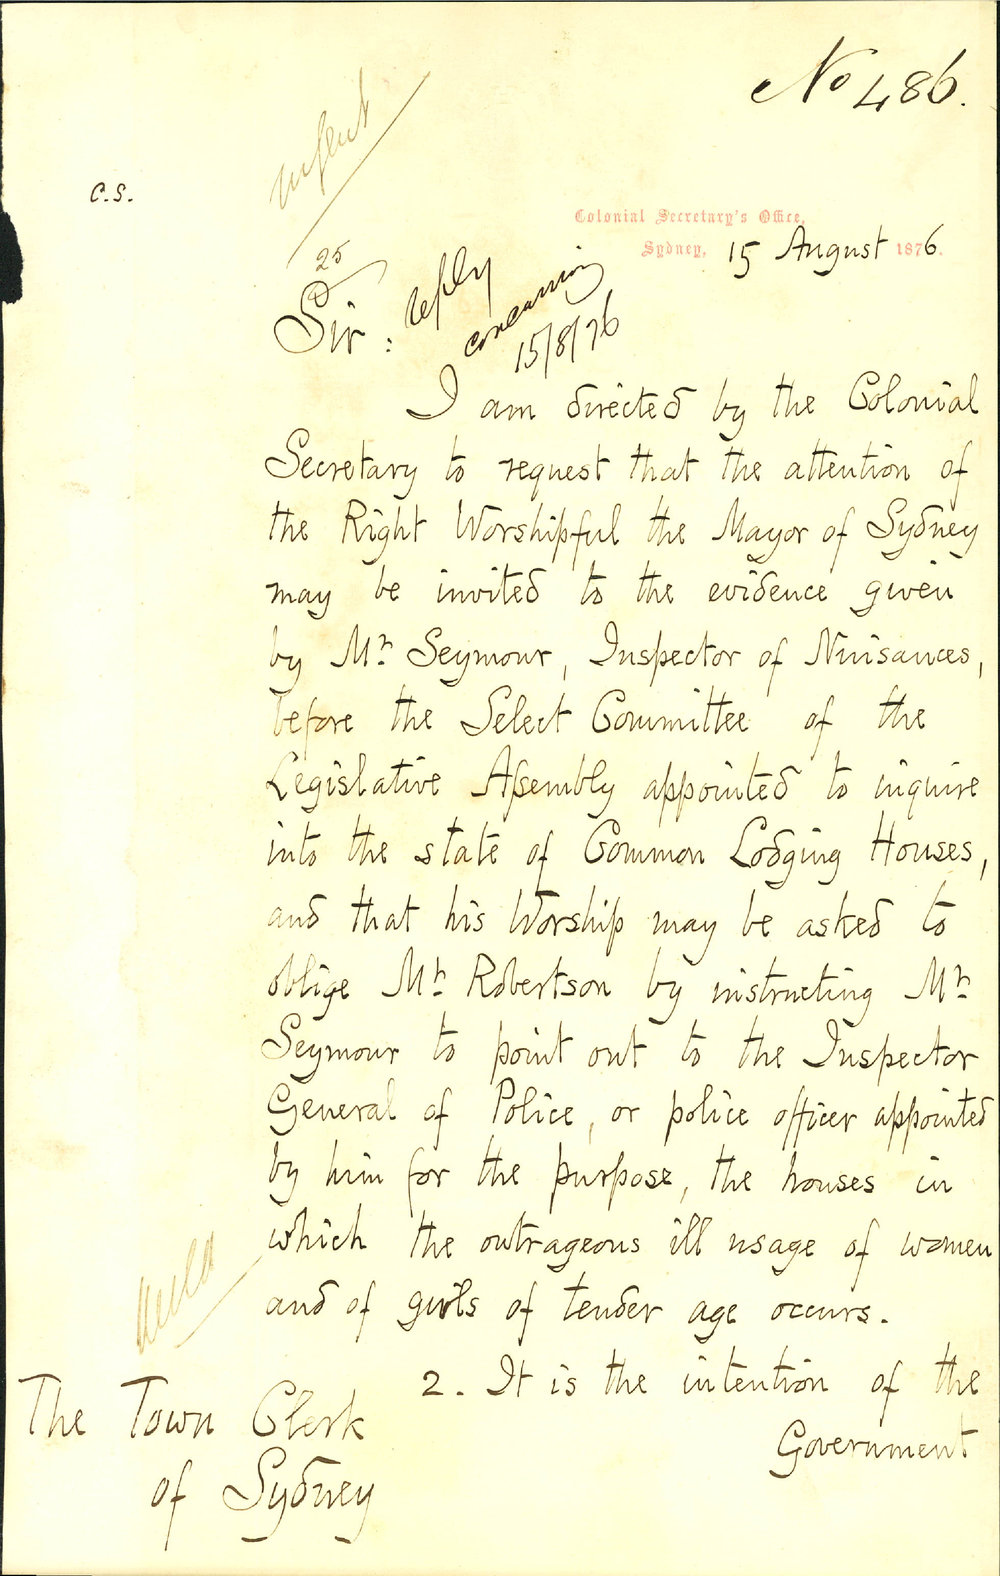 No 486.
Urgent
C.S.
Colonial Secretary's Office,
Sydney, 15 August 1876.
25
Sir:
reply
concurring
15/8/76
I am directed by the Colonial
Secretary to request that the attention of
the Right Worshipful the Mayor of Sydney
may be invited to the evidence given
by Mr. Seymour, Inspector of Nuisances,
before the Select Committee of the
Legislative Assembly appointed to inquire
into the state of Common Lodging Houses,
and that his Worship may be asked to
oblige Mr. Robertson by instructing Mr.
Seymour to point out to the Inspector
General of Police, or police officer appointed
by him for the purpose, the houses in
which the outrageous ill usage of women
and of girls of tender age occurs.
2. It is the intention of the
Government
The Town Clerk
of Sydney